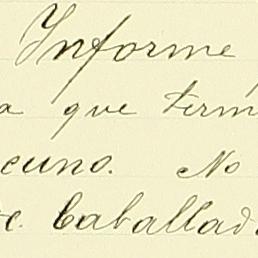 Informe
a que term
cuno. No
c. Caballad